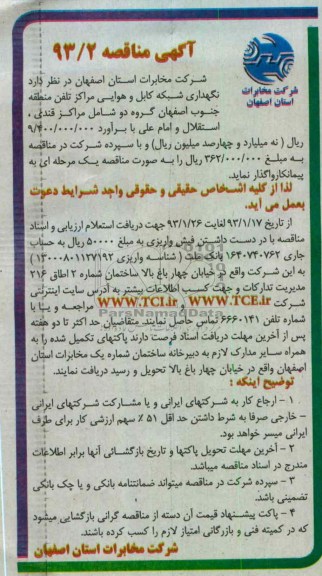 آگهی مناقصه ۹۳/۲
شرکت مخابرات
استان اصفهان
شرکت مخابرات استان اصفهان در نظر دارد
نگهداری شبکه کابل و هوایی مراکز تلفن منطقه
جنوب اصفهان گروه دو شامل مراکز قندی ،
استقلال و امام علی با برآورد ۹/۴۰۰/۰۰۰/۰۰۰
ریال ( نه میلیارد و چهارصد میلیون ریال) و با سپرده شرکت در مناقصه
به مبلغ ۳۶۲/۰۰۰/۰۰۰ ریال را به صورت مناقصه یک مرحله ای به
پیمانکارواگذار نماید.
لذا از کلیه اشخاص حقیقی و حقوقی واجد شرایط دعوت
بعمل می آید.
از تاریخ ۹۳/۱/۱۷ لغایت ۹۳/۱/۲۶ جهت دریافت استعلام ارزیابی و اسناد
مناقصه با در دست داشتن فیش واریزی به مبلغ ۵۰۰۰۰ ریال به حساب
جاری ۱۶۴۰۷۴۰۷۶۲ بانک ملت ( شناسه واریزی ۱۳۰۰۰۰۸۰۱۱۲۷۱۹۲)
به این شرکت واقع در خیابان چهار باغ بالا ساختمان شماره ۲ اطاق ۲۱۶
مدیریت تدارکات و جهت کسب اطلاعات بیشتر به آدرس سایت اینترنتی
شرکت WWW.TCI.ir یا WWW.TCE.ir مراجعه و یا با
شماره تلفن ۶۶۶۰۱۴۱ تماس حاصل نمایند. متقاضیان حداکثر تا دو هفته
پس از آخرین مهلت دریافت اسناد فرصت دارند پاکتهای تکمیل شده را به
همراه سایر مدارک لازم به دبیرخانه ساختمان شماره یک مخابرات استان
اصفهان واقع در خیابان چهار باغ بالا تحویل و رسید دریافت نمایند.
توضیح اینکه :
۱ - ارجاع کار به شرکتهای ایرانی و یا مشارکت شرکتهای ایرانی
- خارجی صرفا به شرط داشتن حد اقل ۵۱ ٪ سهم ارزشی کار برای طرف
ایرانی میسر خواهد بود.
۲ - آخرین مهلت تحویل پاکتها و تاریخ بازگشائی آنها برابر اطلاعات
مندرج در اسناد مناقصه میباشد.
۳ - سپرده شرکت در مناقصه میتواند ضمانتنامه بانکی و یا چک بانکی
تضمینی باشد.
۴ - پاکت پیشنهاد قیمت آن دسته از مناقصه گرانی بازگشایی میشود
که در کمیته فنی و بازرگانی امتیاز لازم را کسب کرده باشند.
شرکت مخابرات استان اصفهان